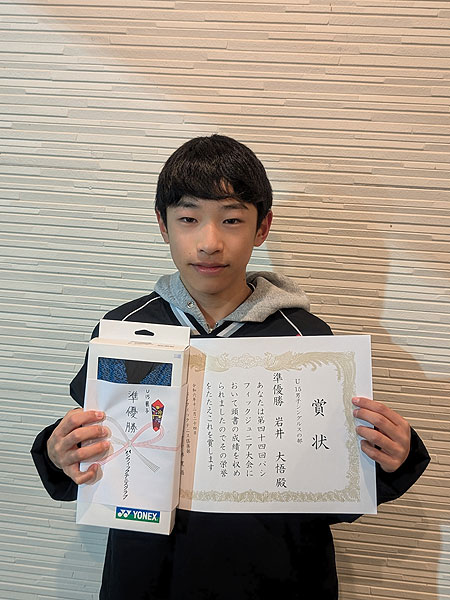 賞状
U15男子シングルスの部
準優勝 岩井 大悟 殿
あなたは第四十四回パシ
フィックジュニア大会に
おいて頭書の成績を収め
られましたのでその栄誉
をたたえこれを賞します
U15 男子
準優勝
YONEX